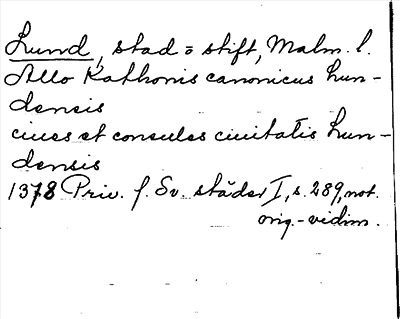 Lund, stad = stift, Malm. l.
Allo Kathonis canonicus Lun-
densis
ciues et consules ciuitatis Lun-
densis
1378 Priv. f. Sv. städer I, s. 289, not.
orig.-vidim.